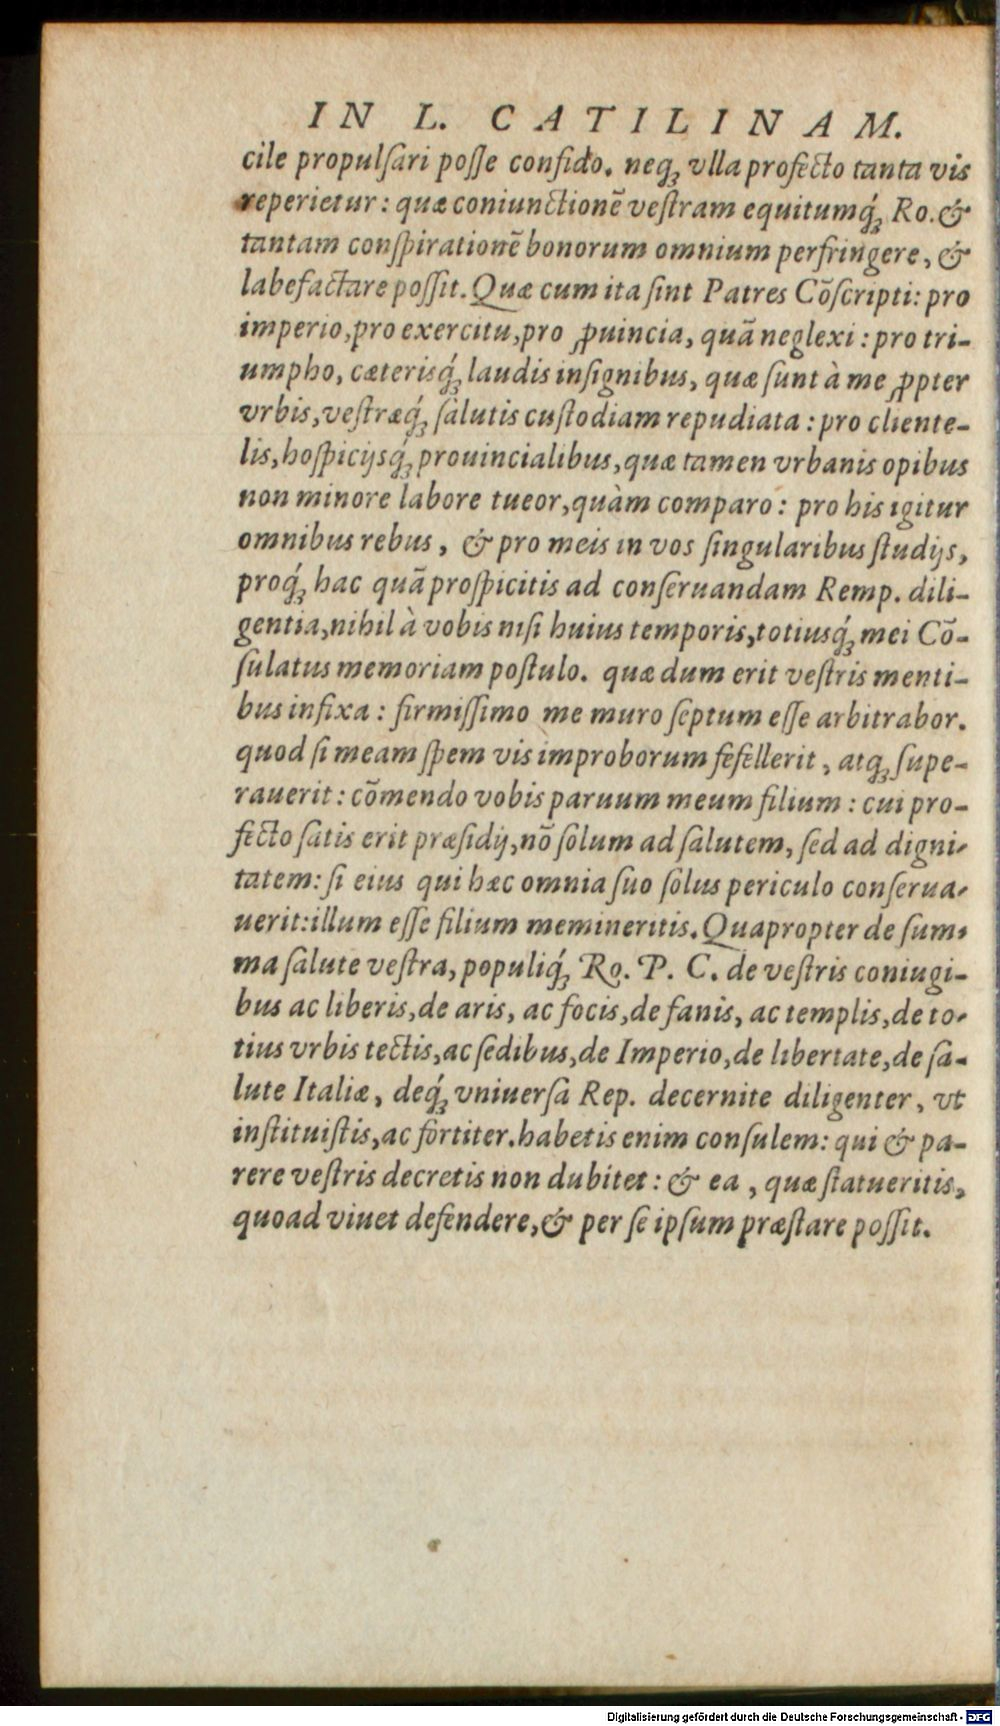 IN L. CATILINAM.
cile propulſari poſſe confido. neqꝫ vlla profecto tanta vis
reperietur: quæ coniunctionē veſtram equitumq́ꝫ Ro. &
tantam conſpirationē bonorum omnium perfringere, &
labefactare poſſit. Quæ cum ita ſint Patres Cōſcripti: pro
imperio, pro exercitu, pro ꝓuincia, quā neglexi: pro tri-
umpho, cæterisq́ꝫ laudis inſignibus, quæ ſunt à me ꝓpter
vrbis, veſtræq́ꝫ ſalutis cuſtodiam repudiata: pro cliente-
lis, hoſpicijsq́ꝫ prouincialibus, quæ tamen vrbanis opibus
non minore labore tueor, quàm comparo: pro his igitur
omnibus rebus, & pro meis in vos ſingularibus ſtudijs,
proq́ꝫ hac quā proſpicitis ad conſeruandam Remp. dili-
gentia, nihil à vobis niſi huius temporis, totiusq́ꝫ mei Cō-
ſulatus memoriam poſtulo. quæ dum erit veſtris menti-
bus infixa: firmiſſimo me muro ſeptum eſſe arbitrabor.
quod ſi meam ſpem vis improborum fefellerit, atqꝫ ſupe-
rauerit: cōmendo vobis paruum meum filium: cui pro-
fecto ſatis erit præſidij, nō ſolum ad ſalutem, ſed ad digni-
tatem: ſi eius qui hæc omnia ſuo ſolus periculo conſerua-
uerit: illum eſſe filium memineritis. Quapropter de ſum-
ma ſalute veſtra, populiq́ꝫ Ro. P. C. de veſtris coniugi-
bus ac liberis, de aris, ac focis, de fanis, ac templis, de to-
tius vrbis tectis, ac ſedibus, de Imperio, de libertate, de ſa-
lute Italiæ, deq́ꝫ vniuerſa Rep. decernite diligenter, vt
inſtituiſtis, ac fortiter. habetis enim conſulem: qui & pa-
rere veſtris decretis non dubitet: & ea, quæ ſtatueritis,
quoad viuet defendere, & per ſe ipſum præſtare poſſit.
Digitalisierung gefördert durch die Deutsche Forschungsgemeinschaft - DFG